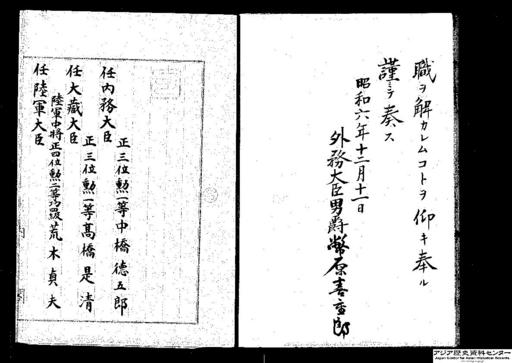 職ヲ解カレムコトヲ仰キ奉ル
謹テ奏ス
昭和六年十二月十一日
外務大臣男爵幣原喜重郎
任内務大臣
正三位勲一等中橋徳五郎
任大蔵大臣
正三位勲一等高橋是清
任陸軍大臣
陸軍中将正四位勲二等功四級荒木貞夫
アジア歴史資料センター
Japan Center for Asian Historical Records